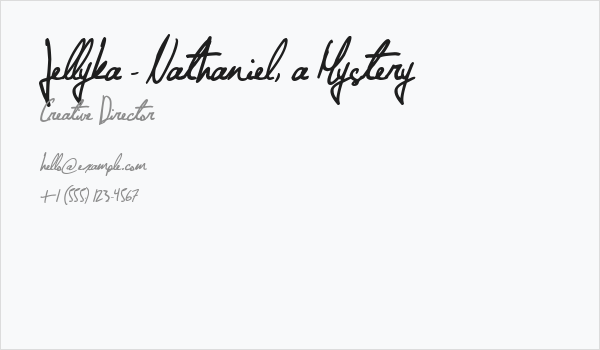 Jellyka - Nathaniel, a Mystery
Creative Director
hello@example.com
+1 (555) 123-4567